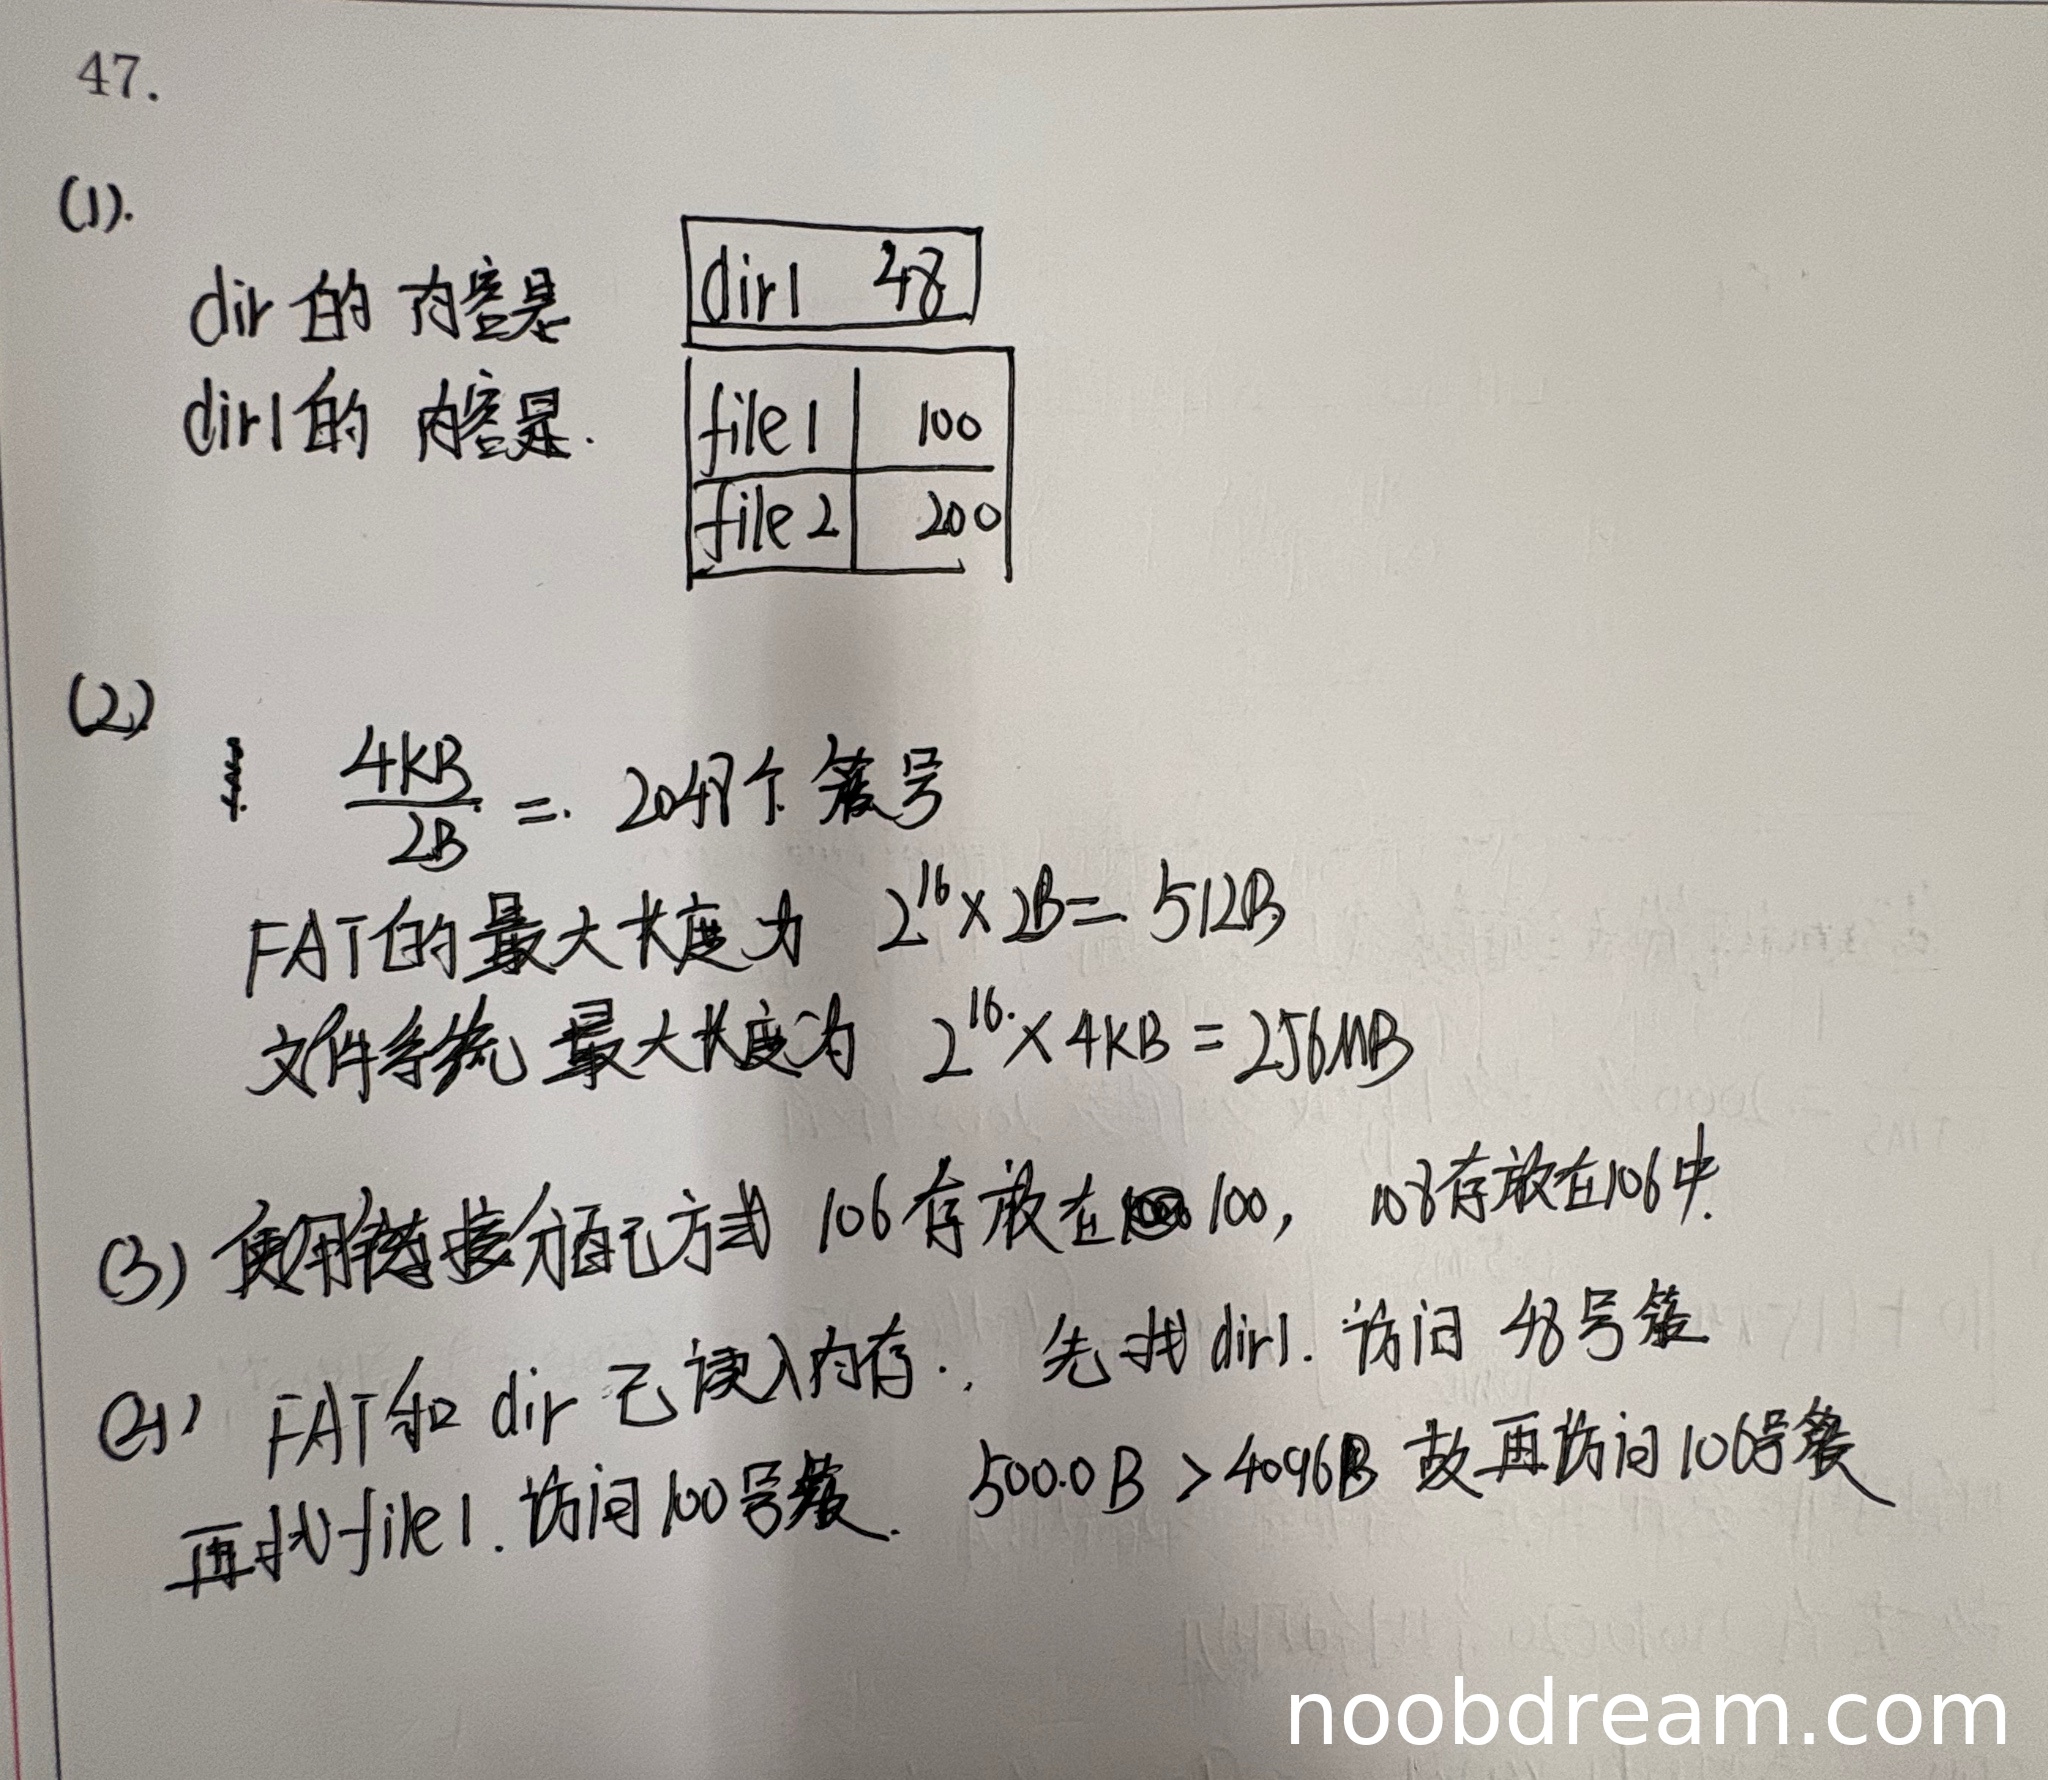 47.
(1).
dir 的 内容是
dir1 48
dir1的 内容是.
file1 100
file2 200
(2)
4KB
2B
=. 2048个 簇号
FAT的最大长度为 2^16×2B= 512B
文件系统 最大长度为 2^16.×4KB=256MB
(3) 使用链接分配方式 106存放在 100, 108存放在106中.
(4) FAT和 dir 已读入内存., 先找 dir1. 访问 48号簇
再找file1. 访问100号簇. 5000B>4096B 故再访问106号簇
noobdream.com